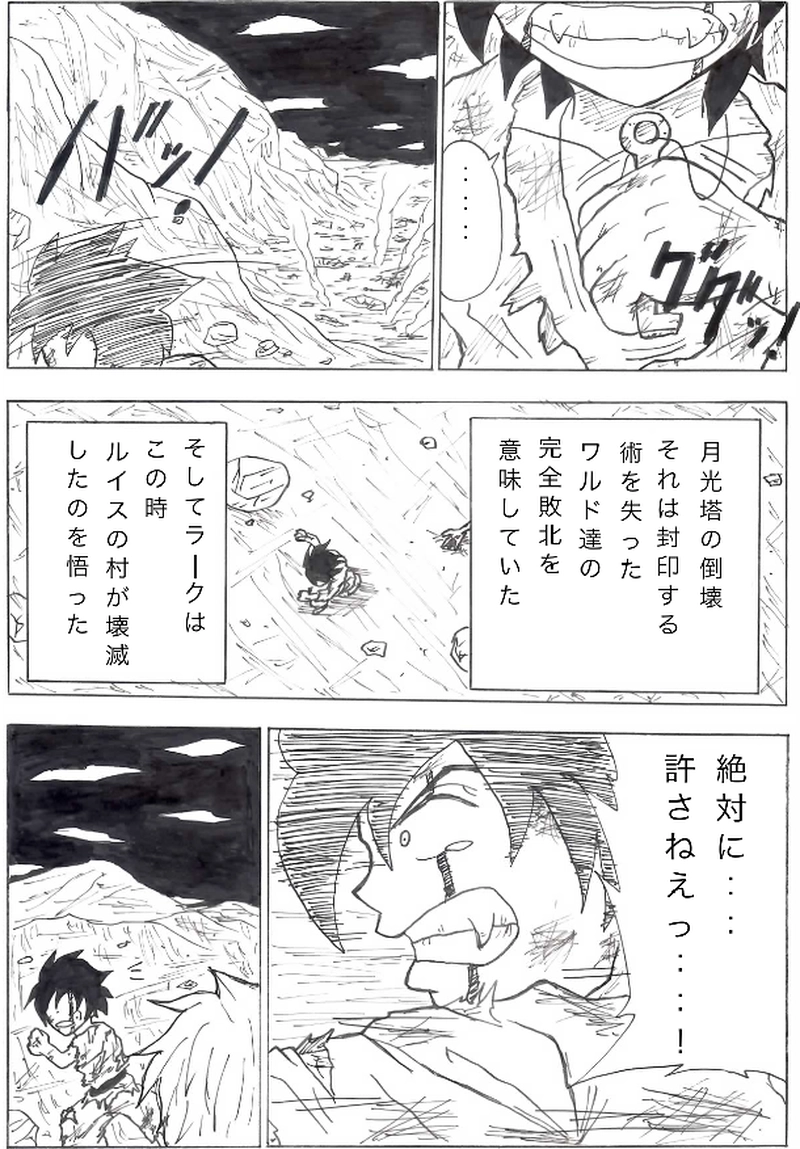 ‥‥‥
グダッ！
バッ！
月光塔の倒壊
それは封印する
術を失った
ワルド達の
完全敗北を
意味していた
そしてラークは
この時
ルイスの村が壊滅
したのを悟った
絶対に‥‥
許さねえっ‥‥！